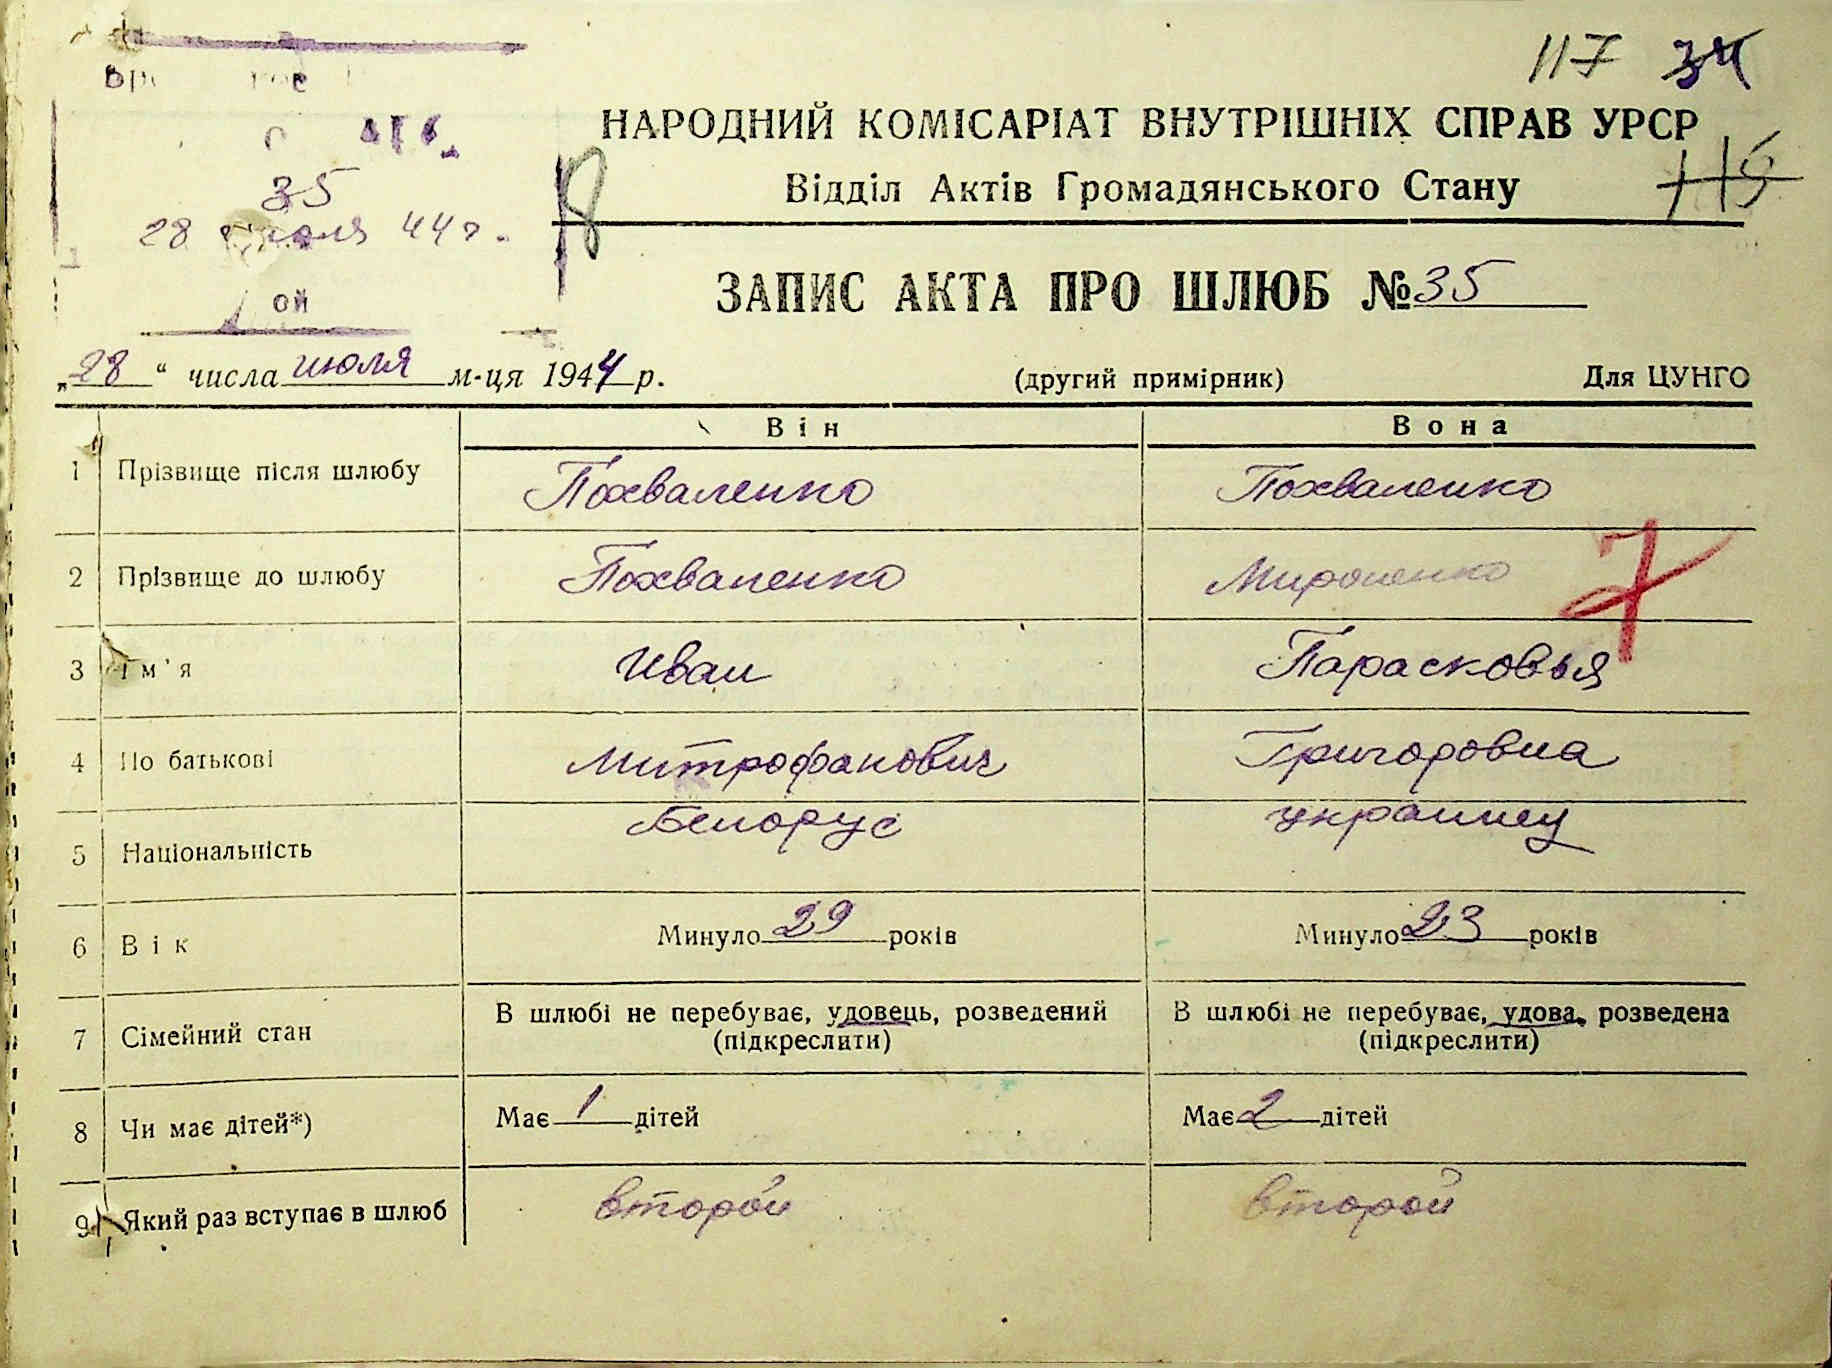 117 34
НАРОДНИЙ КОМІСАРІАТ ВНУТРІШНІХ СПРАВ УРСР
Відділ Актів Громадянського Стану
115
35
28 июля 44 г.
ой
18
ЗАПИС АКТА ПРО ШЛЮБ № 35
„28“ числа июля м-ця 1944 р. (другий примірник) Для ЦУНГО
Він Вона
1 Прізвище після шлюбу Похваленко Похваленко
2 Прізвище до шлюбу Похваленко Мироненко
3 Ім'я Иван Парасковья
4 По батькові Митрофанович Григоровна
5 Національність Белорус украинец
6 Вік Минуло 29 років Минуло 23 років
7 Сімейний стан В шлюбі не перебуває, удовець, розведений (підкреслити) В шлюбі не перебуває, удова, розведена (підкреслити)
8 Чи має дітей*) Має 1 дітей Має 2 дітей
9 Який раз вступає в шлюб второй второй